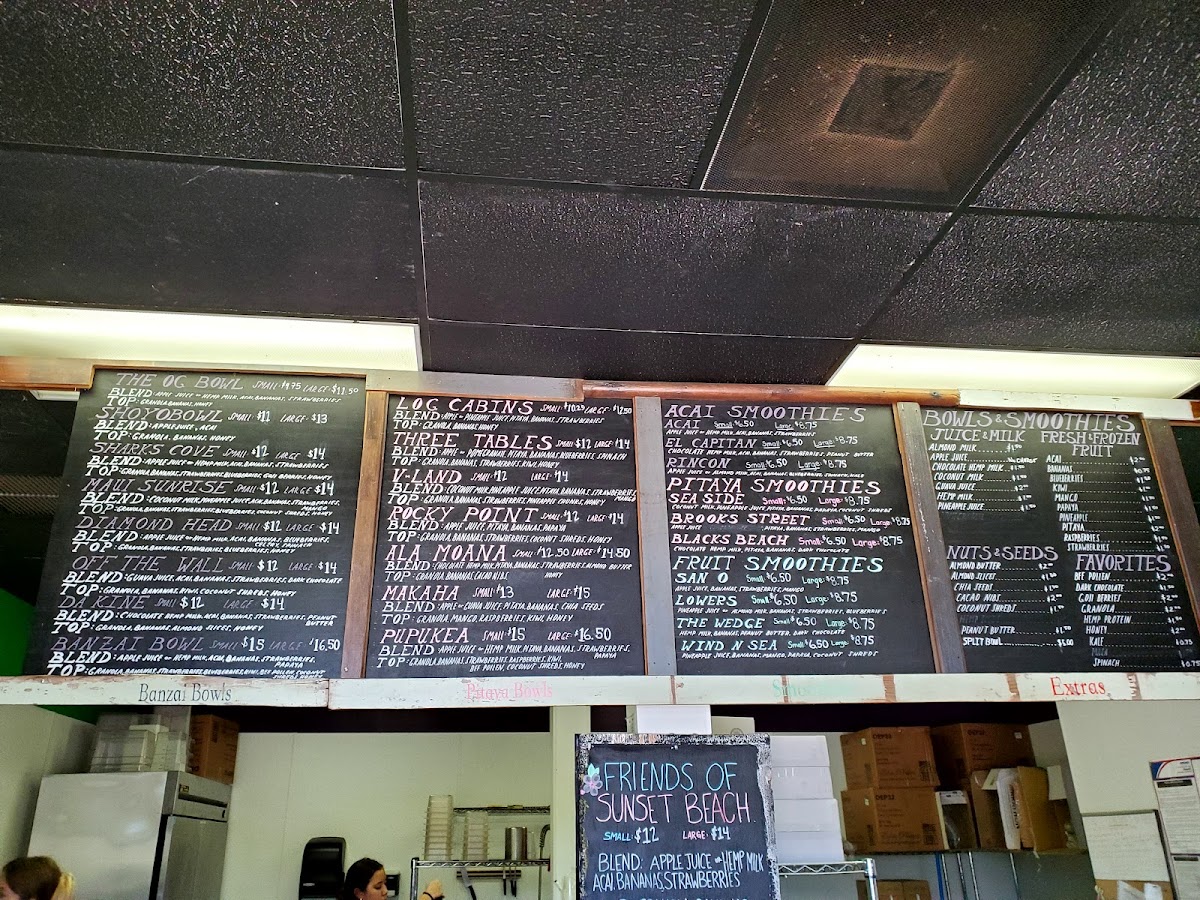 THE OG BOWL SMALL $9.75 LARGE $11.50
BLEND: APPLE JUICE OR HEMP MILK, ACAI, BANANAS, STRAWBERRIES
TOP: GRANOLA, BANANAS, HONEY
SHOYOBOWL SMALL $11 LARGE $13
BLEND: APPLE JUICE, ACAI
TOP: GRANOLA, BANANAS, HONEY
SHARKS COVE SMALL $12 LARGE $14
BLEND: APPLE JUICE OR HEMP MILK, ACAI, BANANAS, STRAWBERRIES
TOP: GRANOLA, BANANAS, STRAWBERRIES, GOJI BERRIES, HONEY
MAUI SUNRISE SMALL $12 LARGE $14
BLEND: COCONUT MILK, PINEAPPLE JUICE, ACAI, BANANAS, STRAWBERRIES, MANGO
TOP: GRANOLA, BANANAS, STRAWBERRIES, BLUEBERRIES, COCONUT SHREDS, HONEY
DIAMOND HEAD SMALL $12 LARGE $14
BLEND: APPLE JUICE OR HEMP MILK, ACAI, BANANAS, BLUEBERRIES, SPINACH
TOP: GRANOLA, BANANAS, STRAWBERRIES, BLUEBERRIES, HONEY
OFF THE WALL SMALL $12 LARGE $14
BLEND: GUAVA JUICE, ACAI, BANANAS, STRAWBERRIES, DARK CHOCOLATE
TOP: GRANOLA, BANANAS, KIWI, COCONUT SHREDS, HONEY
DA KINE SMALL $12 LARGE $14
BLEND: CHOCOLATE HEMP MILK, ACAI, BANANAS, STRAWBERRIES, PEANUT BUTTER
TOP: GRANOLA, BANANAS, ALMOND SLICES, HONEY
BANZAI BOWL SMALL $15 LARGE $16.50
BLEND: APPLE JUICE OR HEMP MILK, ACAI, BANANAS, STRAWBERRIES, PAPAYA
TOP: GRANOLA, BANANAS, STRAWBERRIES, BLUEBERRIES, KIWI, BEE POLLEN, COCONUT SHREDS, HONEY
Banzai Bowls
LOG CABINS SMALL $10.25 LARGE $12.50
BLEND: APPLE OR PINEAPPLE JUICE, PITAYA, BANANAS, STRAWBERRIES
TOP: GRANOLA, BANANAS, HONEY
THREE TABLES SMALL $12 LARGE $14
BLEND: APPLE OR POMEGRANATE, PITAYA, BANANAS, BLUEBERRIES, SPINACH
TOP: GRANOLA, BANANAS, STRAWBERRIES, KIWI, HONEY
V-LAND SMALL $12 LARGE $14
BLEND: COCONUT MILK, PINEAPPLE JUICE, PITAYA, BANANAS, STRAWBERRIES, MANGO
TOP: GRANOLA, BANANAS, STRAWBERRIES, PINEAPPLE, COCONUT SHREDS, HONEY
ROCKY POINT SMALL $12 LARGE $14
BLEND: APPLE JUICE, PITAYA, BANANAS, PAPAYA
TOP: GRANOLA, BANANAS, STRAWBERRIES, COCONUT SHREDS, HONEY
ALA MOANA SMALL $12.50 LARGE $14.50
BLEND: CHOCOLATE HEMP MILK, PITAYA, BANANAS, STRAWBERRIES, ALMOND BUTTER
TOP: GRANOLA, BANANAS, CACAO NIBS HONEY
MAKAHA SMALL $13 LARGE $15
BLEND: APPLE OR GUAVA JUICE, PITAYA, BANANAS, CHIA SEEDS
TOP: GRANOLA, MANGO, RASPBERRIES, KIWI, HONEY
PUPUKEA SMALL $15 LARGE $16.50
BLEND: APPLE JUICE OR HEMP MILK, PITAYA, BANANAS, STRAWBERRIES, PAPAYA
TOP: GRANOLA, BANANAS, STRAWBERRIES, RASPBERRIES, KIWI, BEE POLLEN, COCONUT SHREDS, HONEY
Pitaya Bowls
ACAI SMOOTHIES
ACAI Small $6.50 Large $8.75
APPLE JUICE OR HEMP MILK, ACAI, BANANAS, STRAWBERRIES
EL CAPITAN Small $6.50 Large $8.75
CHOCOLATE HEMP MILK, ACAI, BANANAS, STRAWBERRIES, PEANUT BUTTER
RINCON Small $6.50 Large $8.75
PITAYA SMOOTHIES
SEA SIDE Small $6.50 Large $8.75
COCONUT MILK, PINEAPPLE JUICE, PITAYA, BANANAS, PAPAYA, COCONUT SHREDS
BROOKS STREET Small $6.50 Large $8.75
APPLE JUICE PITAYA, BANANAS, STRAWBERRIES, MANGO
BLACKS BEACH Small $6.50 Large $8.75
CHOCOLATE HEMP MILK, PITAYA, BANANAS, DARK CHOCOLATE
FRUIT SMOOTHIES
SAN O Small $6.50 Large $8.75
APPLE JUICE, BANANAS, STRAWBERRIES, MANGO
LOWERS Small $6.50 Large $8.75
PINEAPPLE JUICE OR ALMOND MILK, BANANAS, STRAWBERRIES, BLUEBERRIES
THE WEDGE Small $6.50 Large $8.75
HEMP MILK, BANANAS, PEANUT BUTTER, DARK CHOCOLATE
WIND N SEA Small $6.50 Large $8.75
PINEAPPLE JUICE, BANANAS, MANGO, PAPAYA, COCONUT SHREDS
BOWLS & SMOOTHIES
JUICE & MILK
ALMOND MILK
APPLE JUICE
CHOCOLATE HEMP MILK
COCONUT MILK
GUAVA JUICE
HEMP MILK
PINEAPPLE JUICE
FRESH & FROZEN
FRUIT
ACAI
BANANAS
BLUEBERRIES
KIWI
MANGO
PAPAYA
PINEAPPLE
PITAYA
RASPBERRIES
STRAWBERRIES
NUTS & SEEDS
ALMOND BUTTER
ALMOND SLICES
CHIA SEEDS
CACAO NIBS
COCONUT SHREDS
PEANUT BUTTER
SPLIT BOWL $1.00
FAVORITES
BEE POLLEN
DARK CHOCOLATE
GOJI BERRIES
GRANOLA
HEMP PROTEIN
HONEY
KALE
SPINACH
Extras
FRIENDS OF
SUNSET BEACH
SMALL: $12 LARGE: $14
BLEND: APPLE JUICE OR HEMP MILK
ACAI, BANANAS, STRAWBERRIES